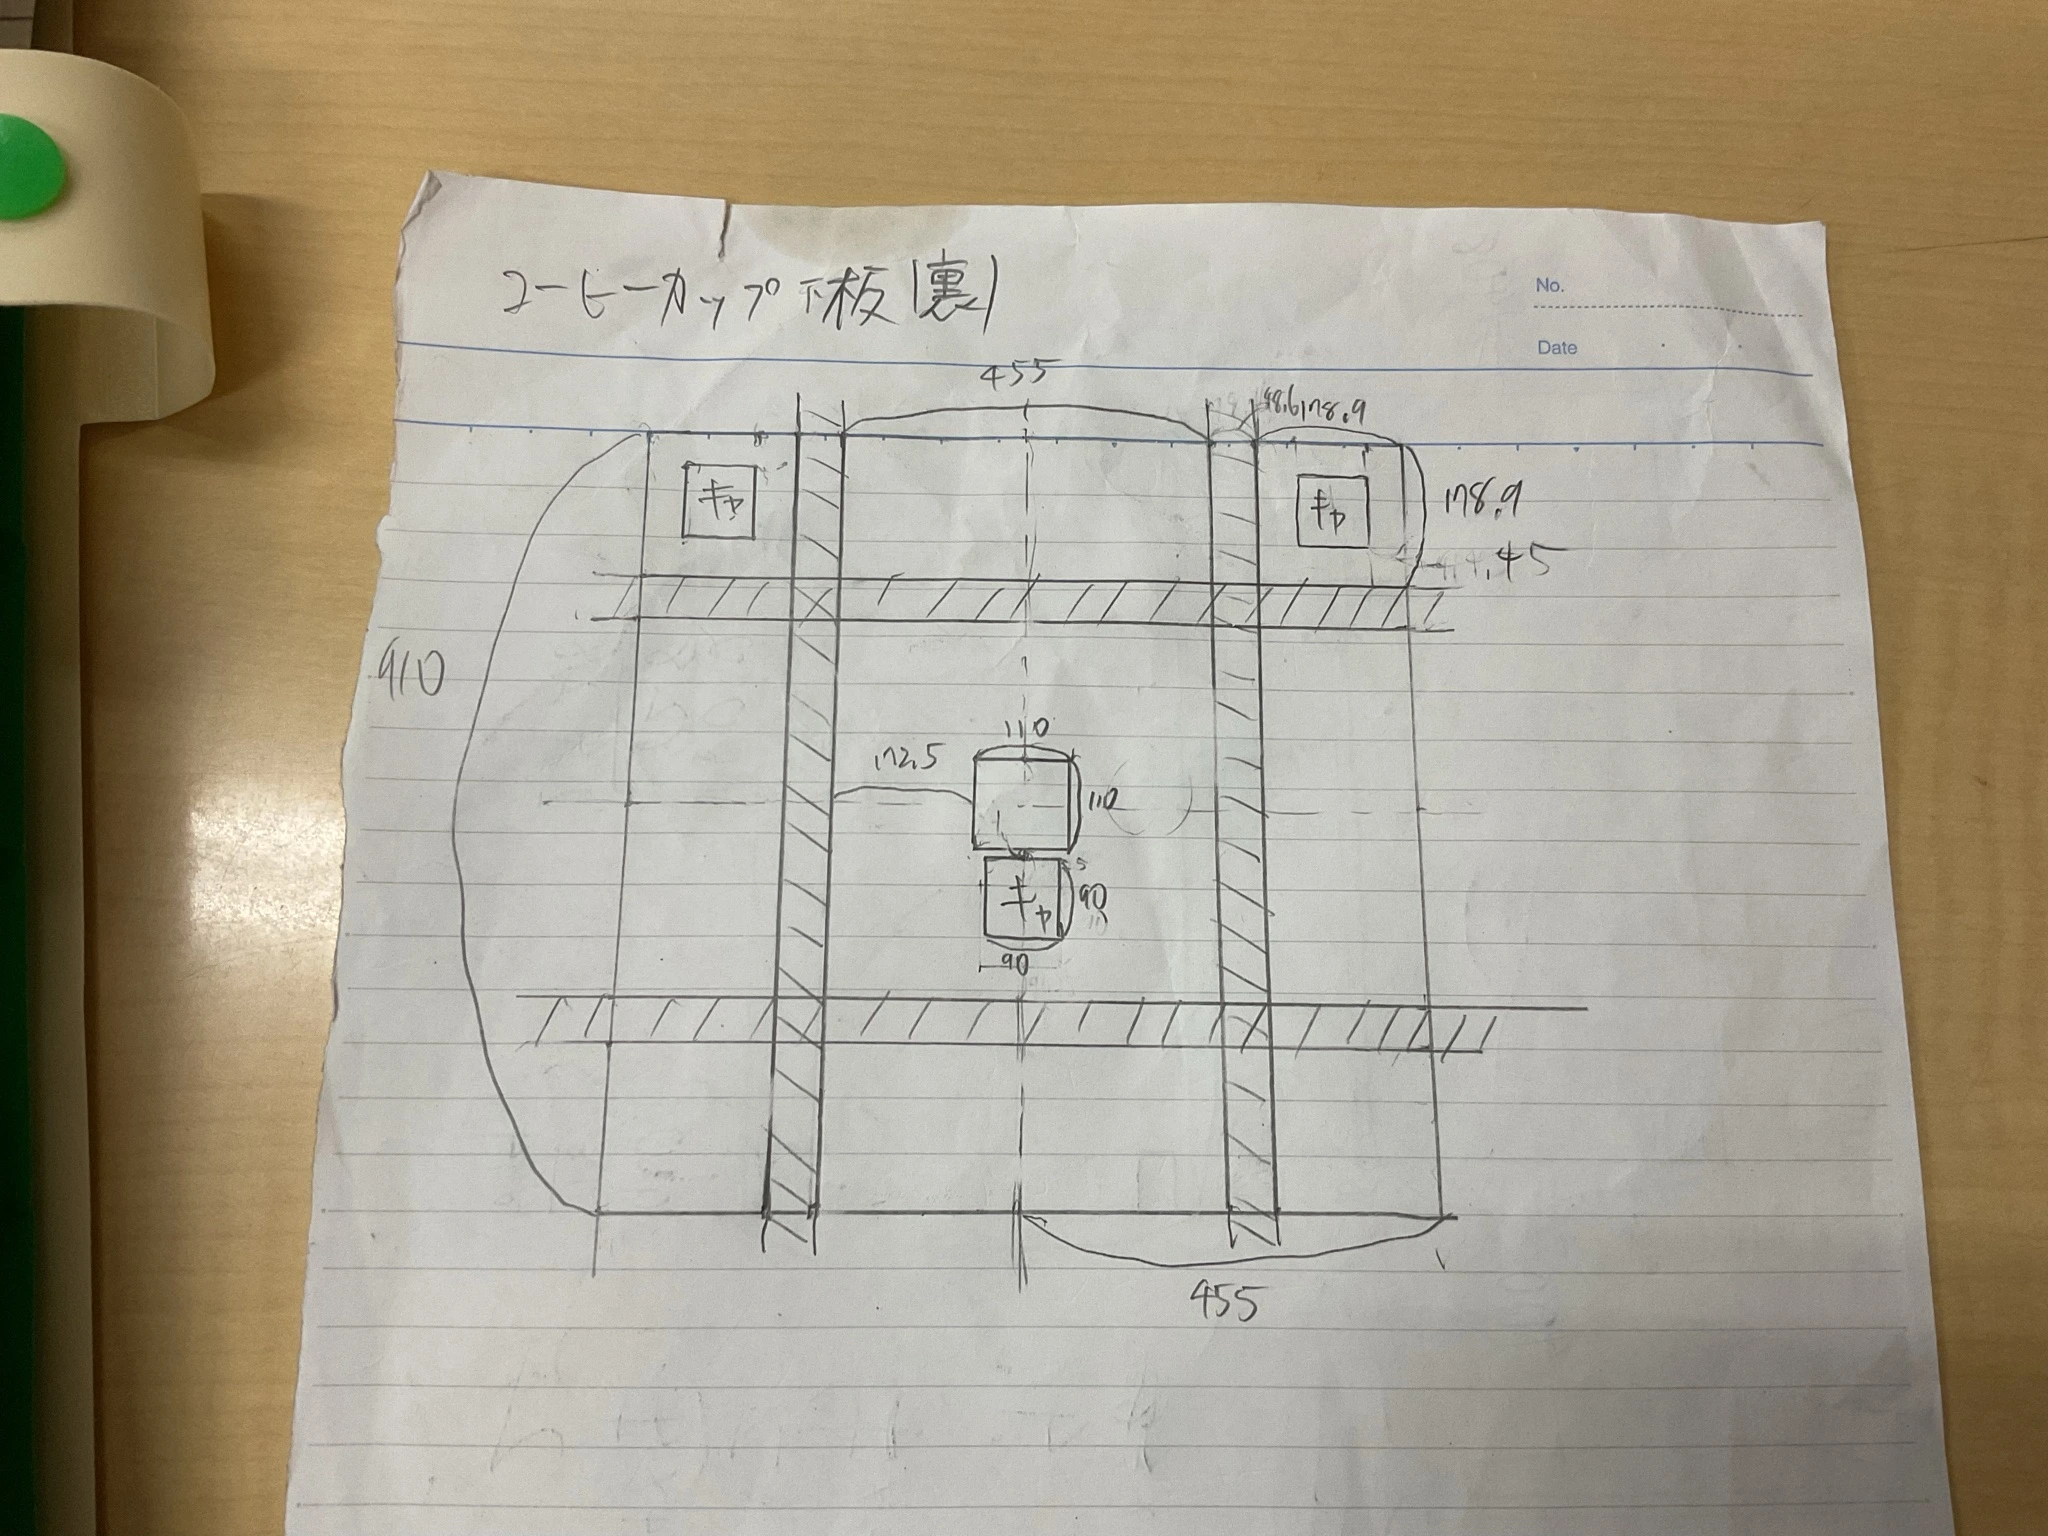 コーヒーカップ下板(裏)
No.
Date
455
48.6
178.9
キャ
キャ
178.9
910
110
172.5
110
5
キャ
90
90
455